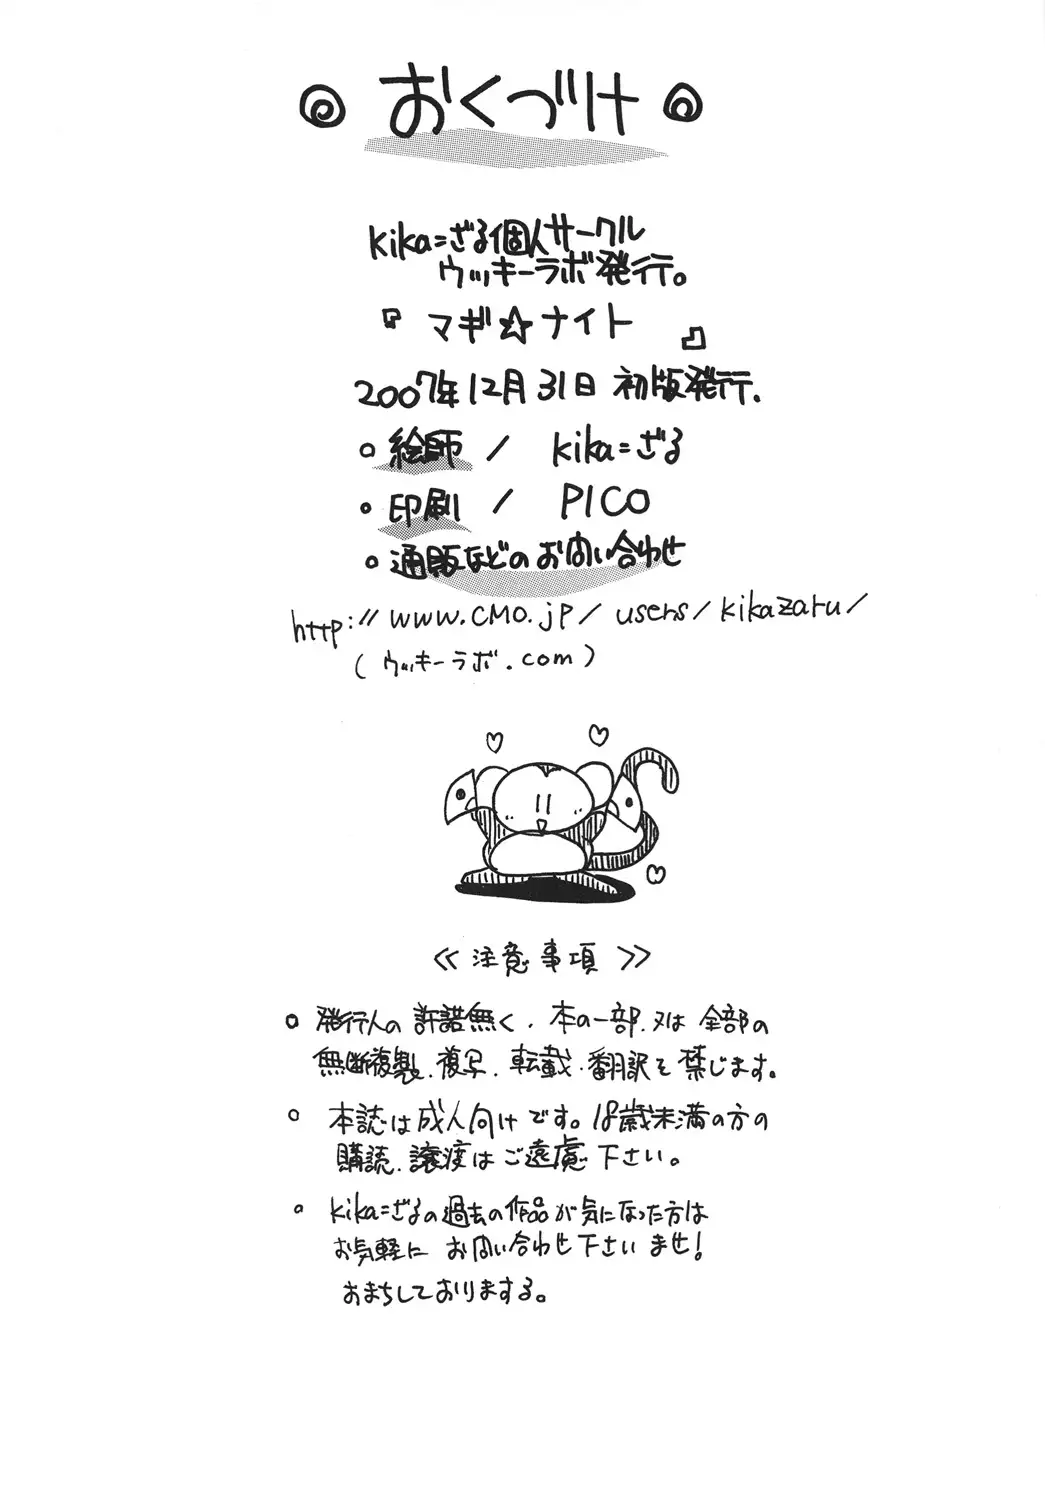 おくづけ
kika=ざる個人サークル
ウッキーラボ発行。
『マギ☆ナイト』
2007年12月31日 初版発行.
○絵師 / kika=ざる
○印刷 / PICO
○通販などのお問い合わせ
http://www.CMO.jp/users/kikazaru/
(ウッキーラボ.com)
≪ 注意事項 ≫
○発行人の許諾無く、本の一部、又は全部の
無断複製、複写、転載、翻訳を禁じます。
○本誌は成人向けです。18歳未満の方の
購読、譲渡はご遠慮下さい。
○kika=ざるの過去の作品が気になった方は
お気軽にお問い合わせ下さいませ!
おまちしておりまする。